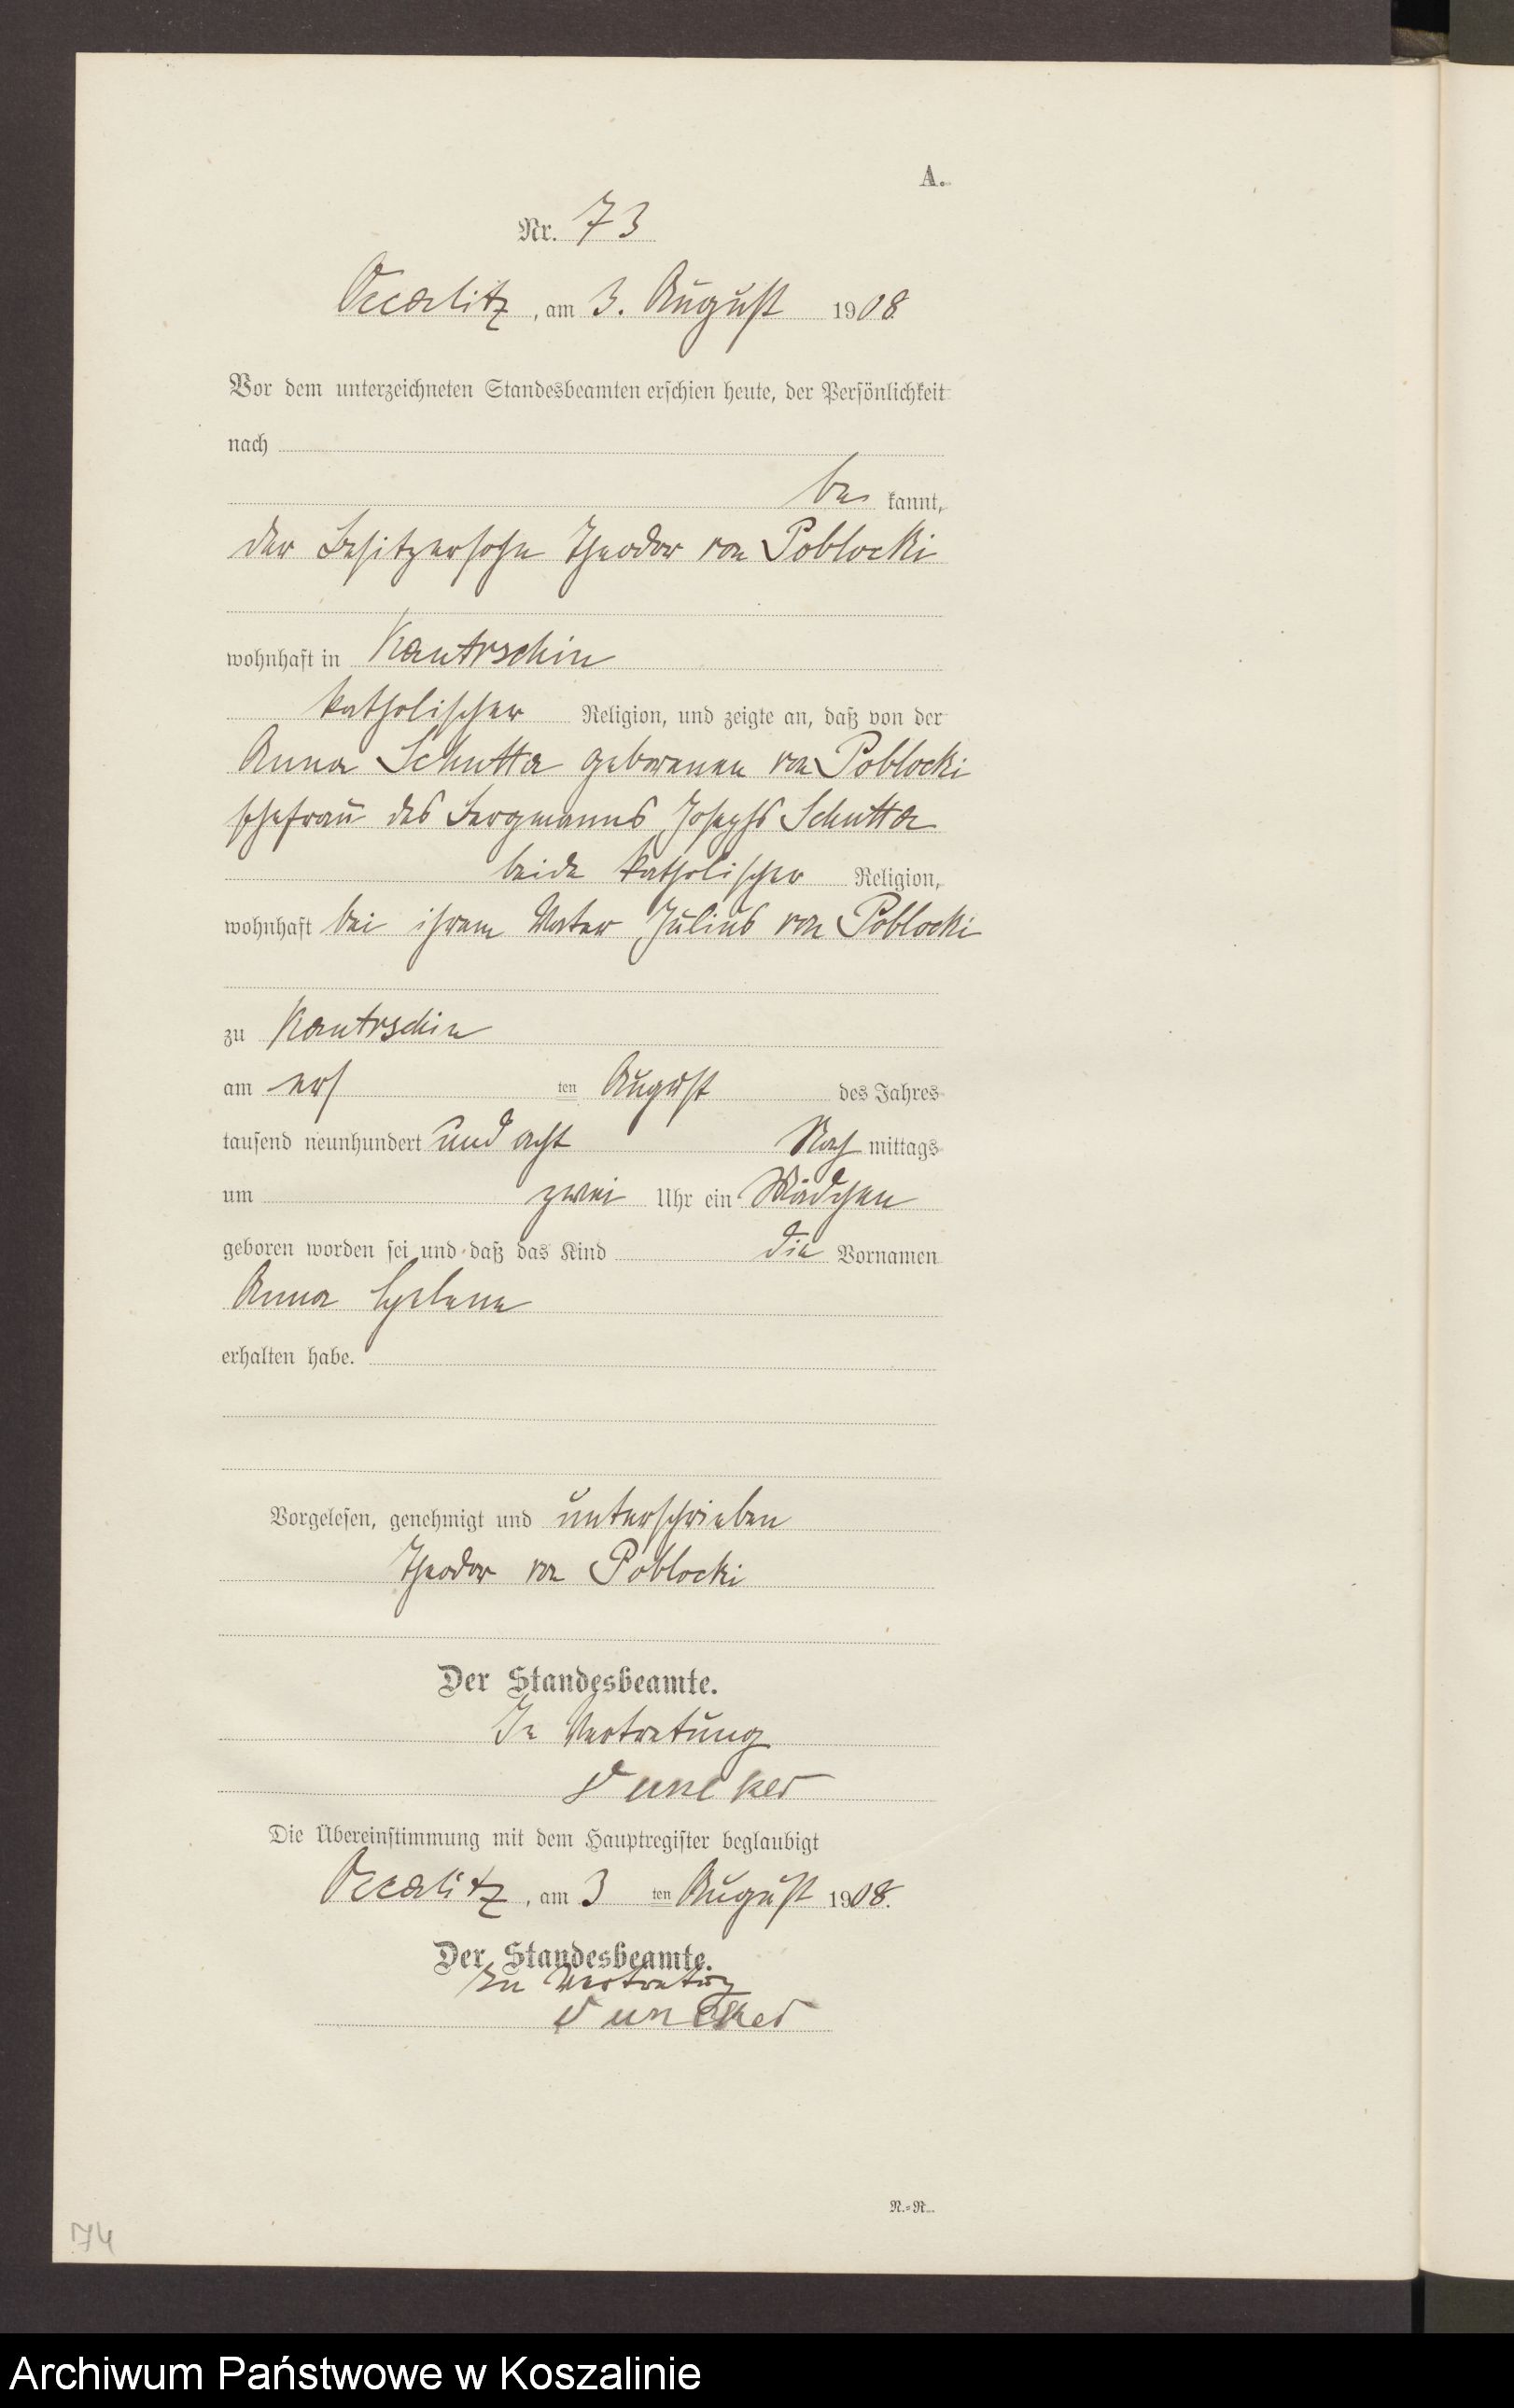 A.
Nr. 73
Occalitz, am 3. August 1908
Vor dem unterzeichneten Standesbeamten erschien heute, der Persönlichkeit
nach
be kannt,
der Besitzersohn Theodor von Poblocki
wohnhaft in Kantrschin
katholischer Religion, und zeigte an, daß von der
Anna Schutta geborenen von Poblocki
Ehefrau des Bergmanns Josephs Schutta
beide katholischer Religion,
wohnhaft bei ihrem Vater Julius von Poblocki
zu Kantrschin
am ersten August des Jahres
tausend neunhundert und acht Nach mittags
um zwei Uhr ein Mädchen
geboren worden sei und daß das Kind die Vornamen
Anna
erhalten habe.
Vorgelesen, genehmigt und unterschrieben
Theodor von Poblocki
Der Standesbeamte.
In Vertretung
Duncker
Die Übereinstimmung mit dem Hauptregister beglaubigt
Occalitz, am 3 ten August 1908.
Der Standesbeamte.
In Vertretung
Duncker
N.=R.
74
Archiwum Państwowe w Koszalinie